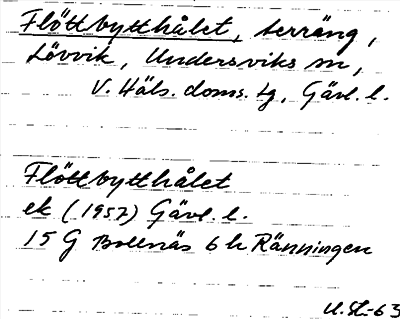 Flöttbytthålet, terräng,
Lövvik, Undersviks sn,
V. Häls. doms. tg, Gävl. l.
Flöttbytthålet
ek (1957) Gävl. l.
15 G Bollnäs 6 h Ränningen
U.St.-63